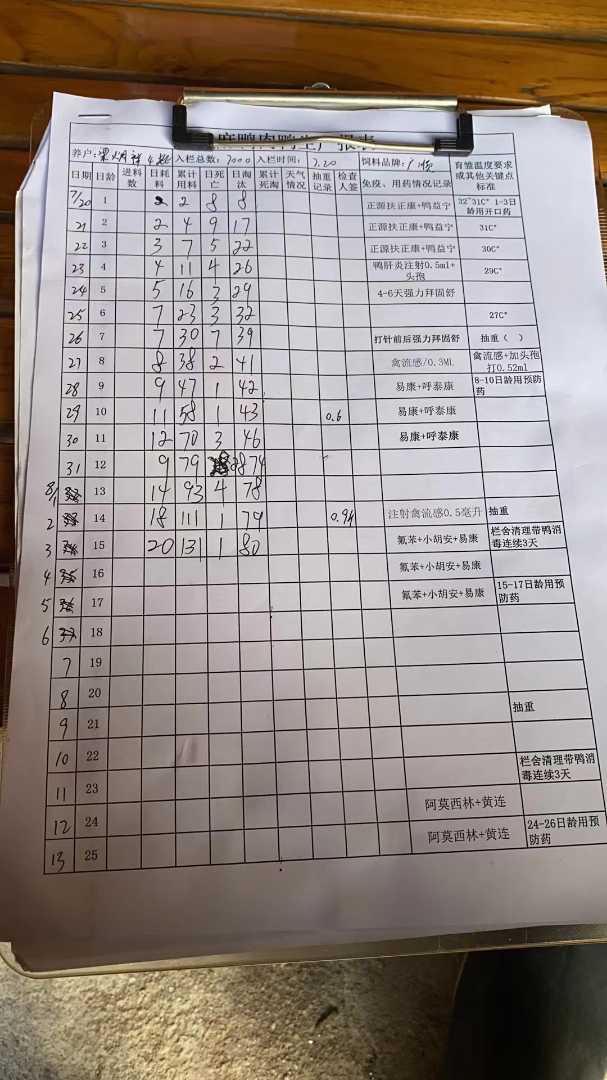 养户: 4批 入栏总数: 7000 入栏时间: 7.20 饲料品牌: 广顺 育雏温度要求或其他关键点标准
日期 日龄 进料数 日耗料 累计用料 日死亡 日淘汰 累计死淘 天气情况 抽重记录 检查人签 免疫、用药情况记录
7/20 1 2 2 8 8 正源扶正康+鸭益宁 32~31C° 1-3日龄用开口药
21 2 2 4 9 17 正源扶正康+鸭益宁 31C°
22 3 3 7 5 22 正源扶正康+鸭益宁 30C°
23 4 4 11 4 26 鸭肝炎注射0.5ml+头孢 29C°
24 5 5 16 3 29 4-6天强力拜固舒
25 6 7 23 3 32 27C°
26 7 7 30 7 39 打针前后强力拜固舒 抽重（ ）
27 8 8 38 2 41 禽流感/0.3ML 禽流感+加头孢打0.52ml
28 9 9 47 1 42 易康+呼泰康 8-10日龄用预防药
29 10 11 58 1 43 0.6 易康+呼泰康
30 11 12 70 3 46 易康+呼泰康
31 12 9 79 28 74
8/1 13 14 93 4 78
2 14 18 111 1 79 0.94 注射禽流感0.5毫升 抽重
3 15 20 131 1 80 氟苯+小胡安+易康 栏舍清理带鸭消毒连续3天
4 16 氟苯+小胡安+易康
5 17 氟苯+小胡安+易康 15-17日龄用预防药
6 18
7 19
8 20
9 21 抽重
10 22
11 23 栏舍清理带鸭消毒连续3天
12 24 阿莫西林+黄连
13 25 阿莫西林+黄连 24-26日龄用预防药